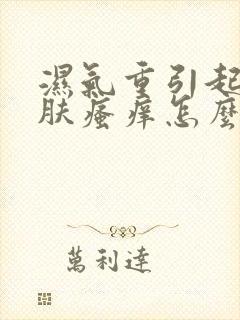 濕氣重引起
肤瘙痒怎麼
萬利達